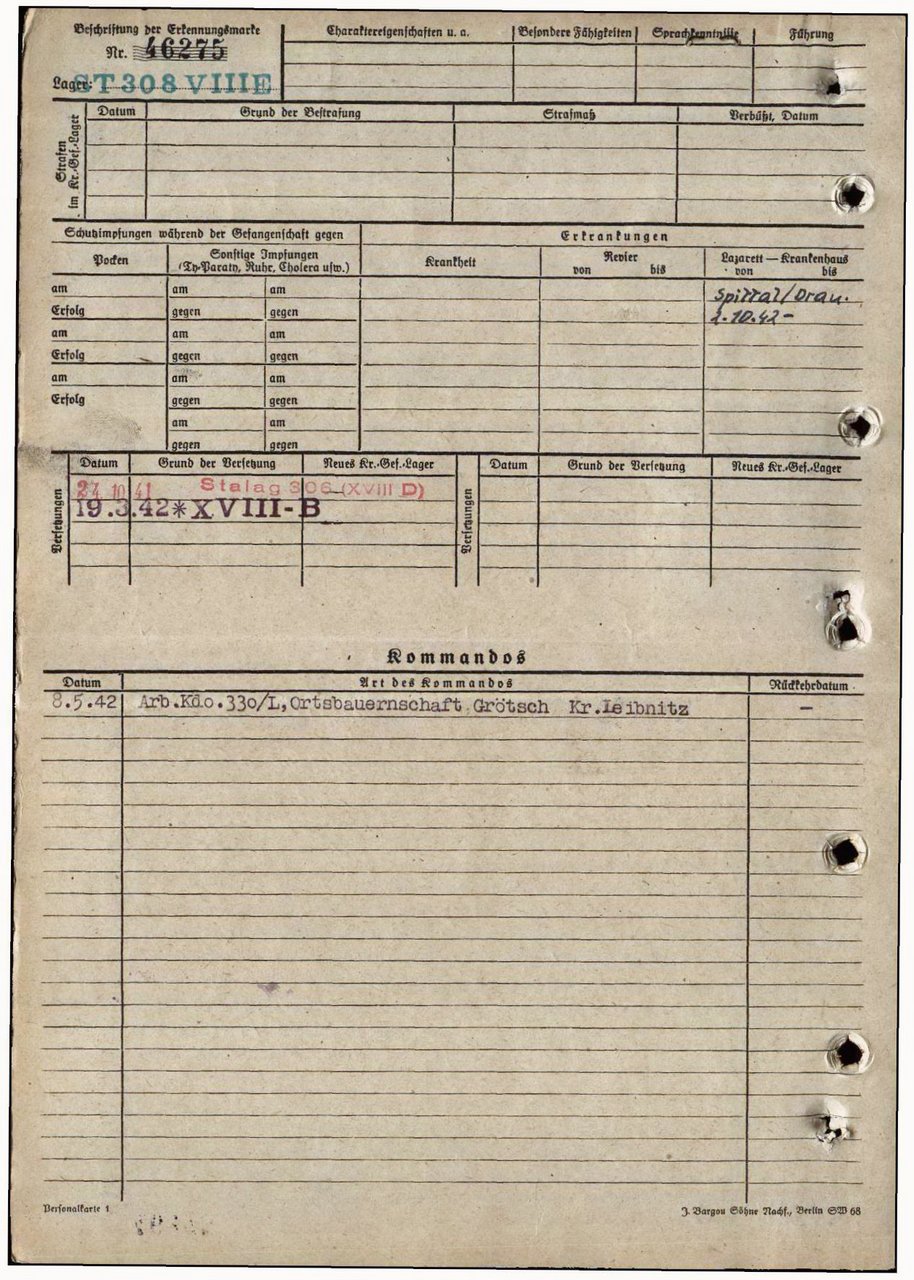 Beschriftung der Erkennungsmarke
Nr. 46275
Lager: ST 308 VIIIE
Charaktereigenschaften u. a.
Besondere Fähigkeiten
Sprachkenntnisse
Führung
Strafen im Kr.-Gef.-Lager
Datum
Grund der Bestrafung
Strafmaß
Verbüßt, Datum
Schutzimpfungen während der Gefangenschaft gegen
Erkrankungen
Pocken
Sonstige Impfungen
(Ty-Paraty, Ruhr, Cholera usw.)
Krankheit
Revier
von bis
Lazarett — Krankenhaus
von bis
am am am
Spittal/Drau.
Erfolg gegen gegen
2.10.42-
am am am
Erfolg gegen gegen
am am am
Erfolg gegen gegen
am am
gegen gegen
Versetzungen
Datum Grund der Versetzung Neues Kr.-Gef.-Lager
24.10.41 Stalag 306 (XVIII D)
19.3.42*XVIII-B
Versetzungen
Datum Grund der Versetzung Neues Kr.-Gef.-Lager
Kommandos
Datum Art des Kommandos Rückkehrdatum
8.5.42 Arb.Kdo.330/L,Ortsbauernschaft Grötsch Kr.Leibnitz –
Personalkarte 1
J. Bargou Söhne Nachf., Berlin SW 68